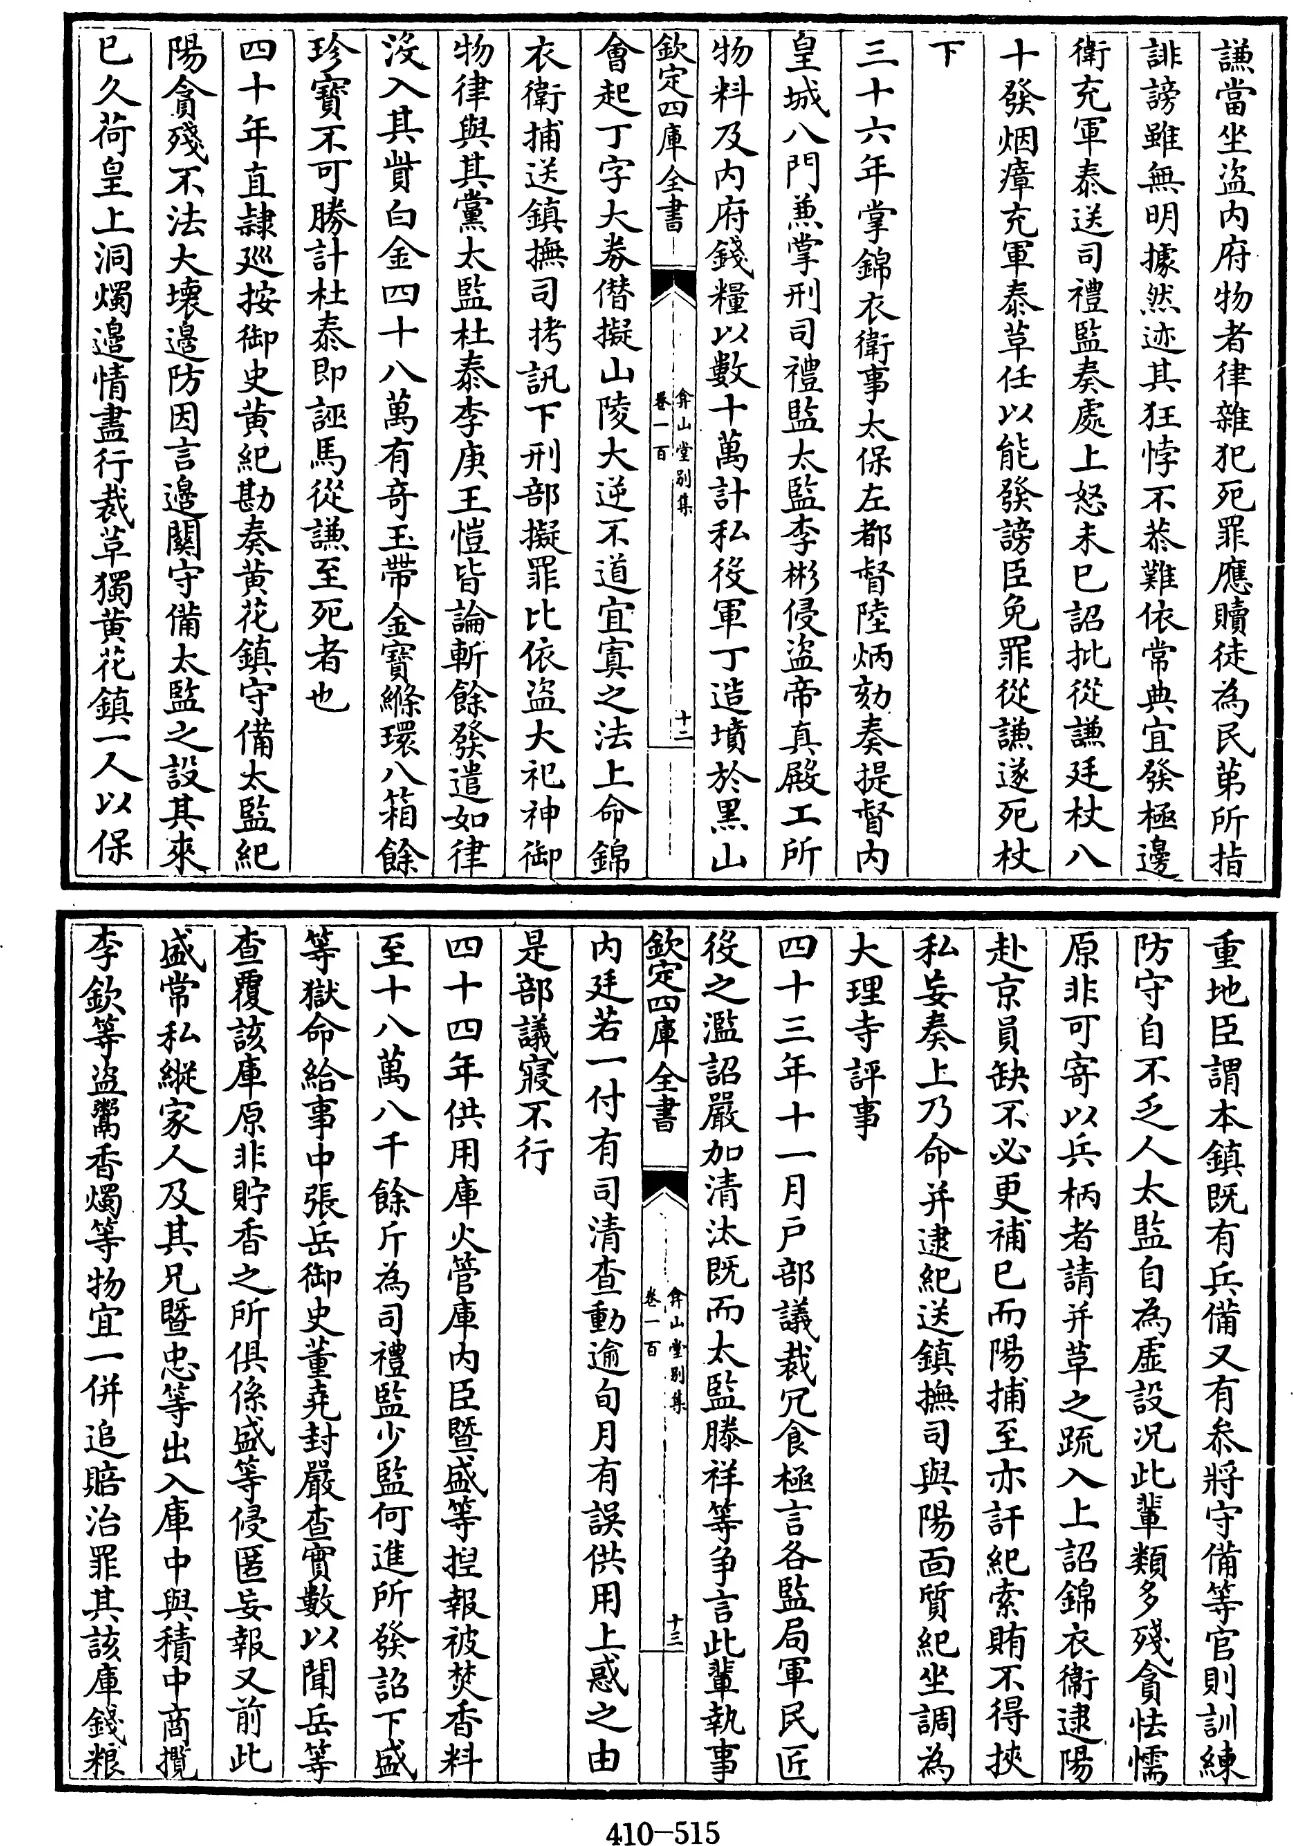 謙當坐盗内府物者律雜犯死罪應贖徒為民第所指
誹謗雖無明據然迹其狂悖不恭難依常典宜發極邊
衛充軍泰送司禮監奏處上怒未已詔批從謙廷杖八
十發烟瘴充軍泰革任以能發謗臣免罪從謙遂死杖
下
三十六年掌錦衣衛事太保左都督陸炳劾奏提督内
皇城八門兼掌刑司禮監太監李彬侵盗帝真殿工所
物料及内府錢糧以數十萬計私役軍丁造墳於黑山
欽定四庫全書
弇山堂别集
卷一百
十二
會起丁字大券僭擬山陵大逆不道宜寘之法上命錦
衣衛捕送鎮撫司拷訊下刑部擬罪比依盗大祀神御
物律與其黨太監杜泰李庚王愷皆論斬餘發遣如律
沒入其貲白金四十八萬有奇玉帶金寶縧環八箱餘
珍寶不可勝計杜泰即誣馬從謙至死者也
四十年直隷廵按御史黄紀勘奏黄花鎮守備太監紀
陽貪殘不法大壞邉防因言邉關守備太監之設其來
已久荷皇上洞燭邉情盡行裁革獨黄花鎮一人以保
重地臣謂本鎮既有兵備又有叅將守備等官則訓練
防守自不乏人太監自為虛設况此輩類多殘貪怯懦
原非可寄以兵柄者請并革之疏入上詔錦衣衛逮陽
赴京員缺不必更補已而陽捕至亦訐紀索賄不得挾
私妄奏上乃命并逮紀送鎮撫司與陽面質紀坐調為
大理寺評事
四十三年十一月户部議裁冗食極言各監局軍民匠
役之濫詔嚴加清汰既而太監滕祥等争言此輩執事
欽定四庫全書
弇山堂别集
卷一百
十三
内廷若一付有司清查動逾旬月有誤供用上惑之由
是部議寢不行
四十四年供用庫火管庫内臣暨盛等捏報被焚香料
至十八萬八千餘斤為司禮監少監何進所發詔下盛
等獄命給事中張岳御史董堯封嚴查實數以聞岳等
查覆該庫原非貯香之所俱係盛等侵匿妄報又前此
盛常私縱家人及其兄暨忠等出入庫中與積中商攬
李欽等盗鬻香燭等物宜一併追賠治罪其該庫錢粮
410-515